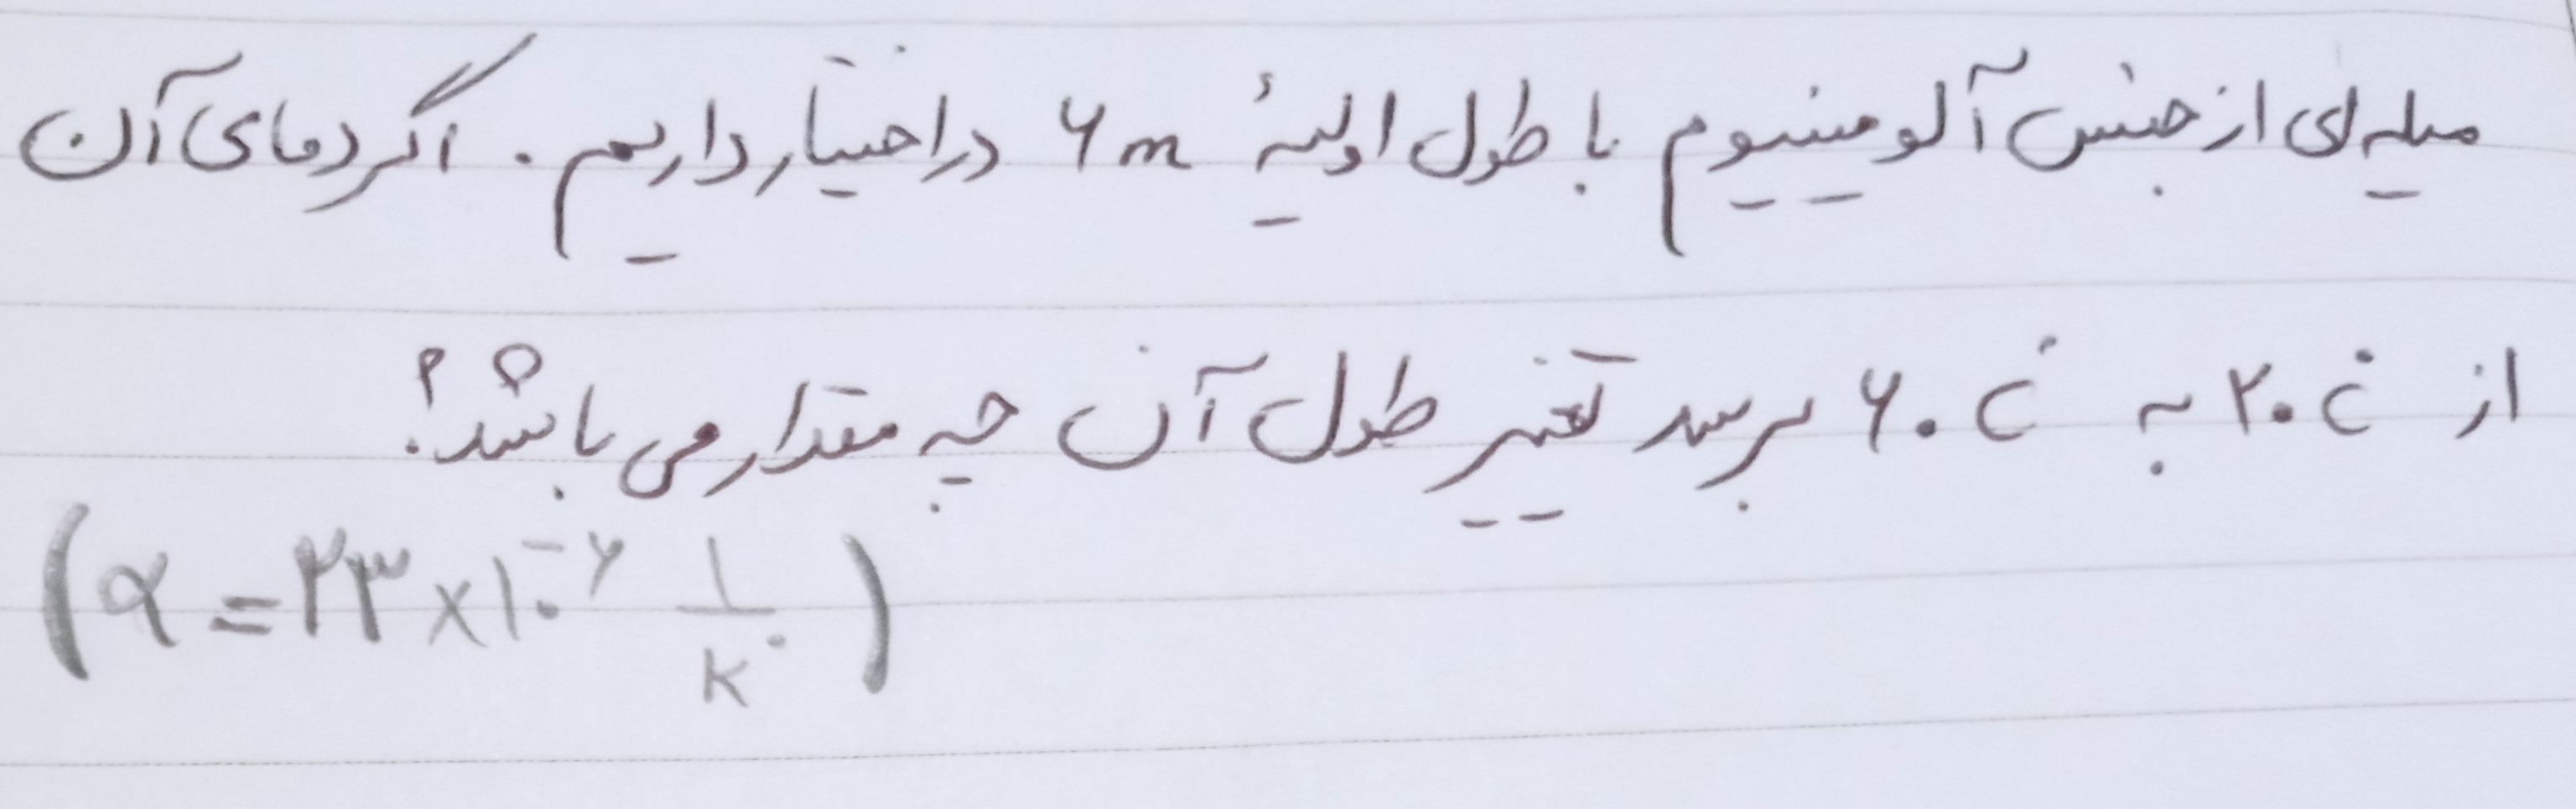 میله‌ای از جنس آلومینیوم با طول اولیهٔ ۶ m در اختیار داریم. اگر دمای آن
از ۲۰ C° به ۶۰ C° برسد تغییر طول آن چه مقدار می باشد؟
(α = ۲۳ × ۱۰⁻⁶ ۱/K°)